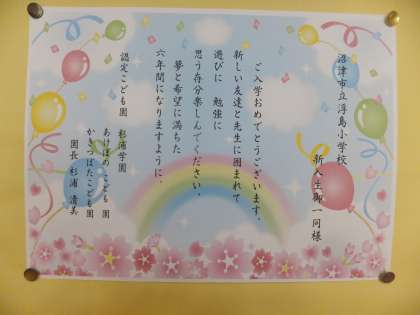 沼津市立浮島小学校
新入生御一同様
ご入学おめでとうございます。
新しい友達と先生に囲まれて
遊びに 勉強に
思う存分楽しんでください。
夢と希望に満ちた
六年間になりますように。
認定こども園 杉浦学園
あけぼのこども園
かきつばたこども園
園長 杉浦 清美